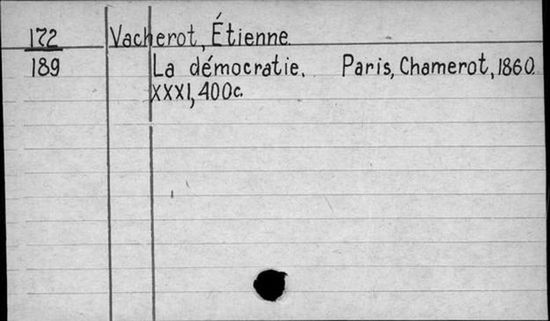 172 Vacherot, Étienne.
189 La démocratie. Paris, Chamerot, 1860.
XXXI, 400c.